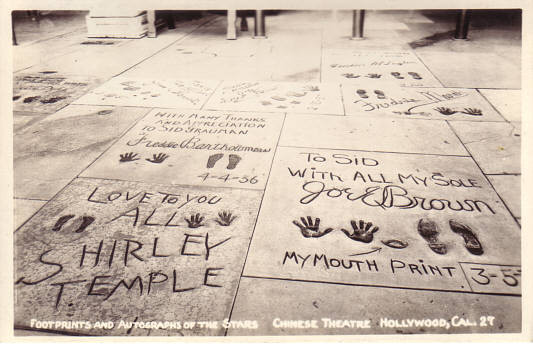 WITH MANY THANKS
AND APPRECIATION
TO SID GRAUMAN
Freddie Bartholomew
4-4-36
TO SID
WITH ALL MY SOLE
Joe E Brown
MY MOUTH PRINT
3-5
LOVE TO YOU
ALL
SHIRLEY
TEMPLE
FOOTPRINTS AND AUTOGRAPHS OF THE STARS CHINESE THEATRE HOLLYWOOD, CAL. 27